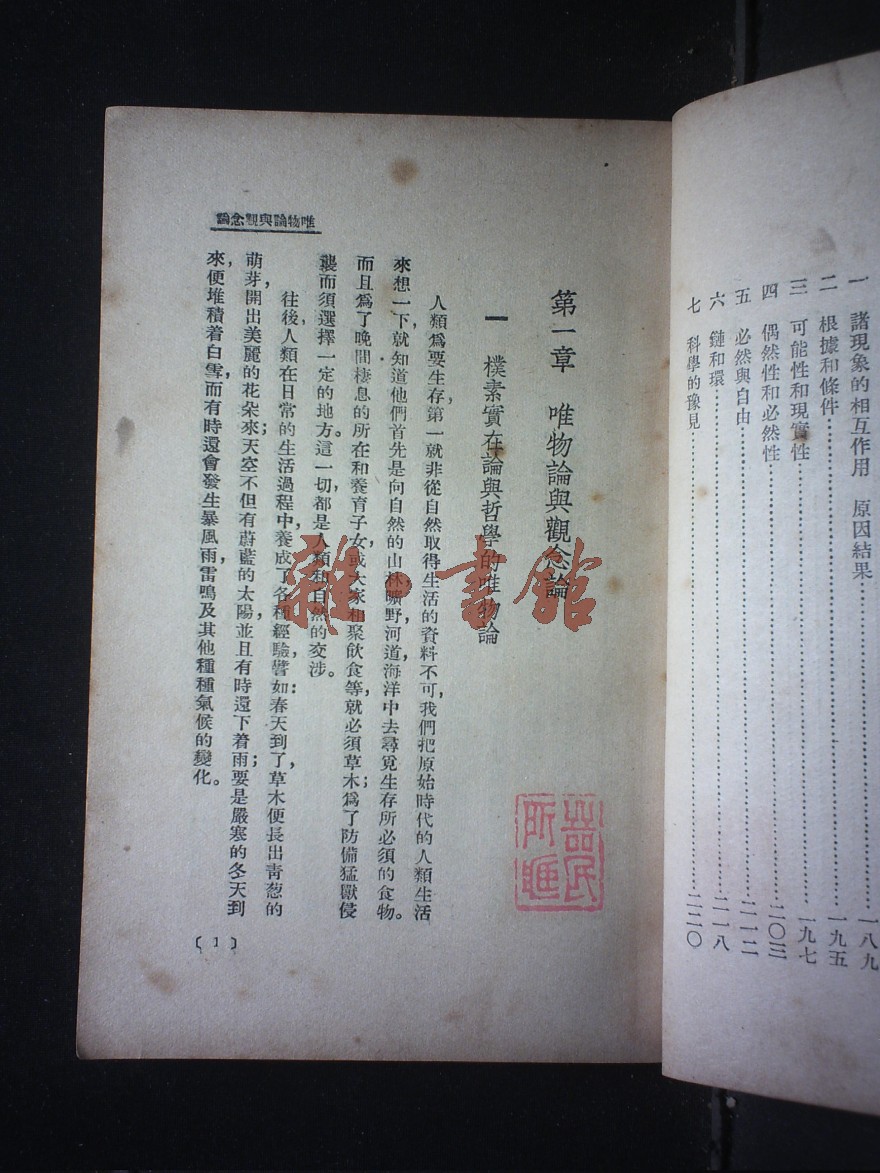 一　諸現象的相互作用　原因結果……一八九
二　根據和條件……一九五
三　可能性和現實性……一九七
四　偶然性和必然性……二〇三
五　必然與自由……二一二
六　鏈和環……二一八
七　科學的豫見……二二〇
唯物論與觀念論
第一章　唯物論與觀念論
一　樸素實在論與哲學的唯物論
人類爲要生存，第一就非從自然取得生活的資料不可，我們把原始時代的人類生活
來想一下，就知道他們首先是向自然的山林，曠野，河道，海洋中去尋覓生存所必須的食物。
而且爲了晚間棲息的所在和養育子女，或大家相聚飲食等，就必須草木；爲了防備猛獸侵
襲而須選擇一定的地方。這一切，都是人類和自然的交涉。
往後，人類在日常的生活過程中，養成了各種經驗，譬如：春天到了，草木便長出青葱的
萌芽，開出美麗的花朵來，天空不但有蔚藍的太陽，並且有時還下着雨；要是嚴寒的冬天到
來，便堆積着白雪，而有時還會發生暴風雨，雷鳴及其他種種氣候的變化。
〔1〕
雜·書館